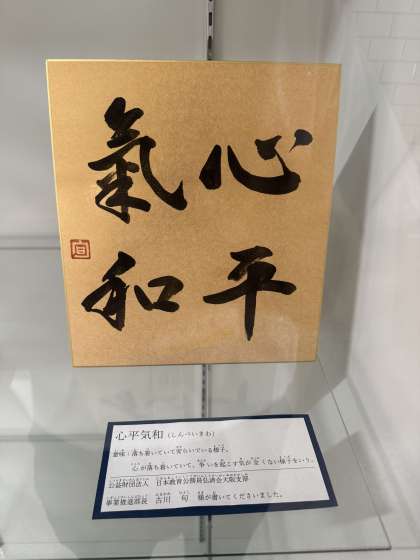 心平
氣和
心平気和（しんぺいきわ）
意味：落ち着いていて安らいでいる様子。
心が落ち着いていて、争いを起こす気が全くない様子をいう。
公益財団法人 日本教育公務員弘済会大阪支部
事業推進部長 古川 旬 様が書いてくださいました。